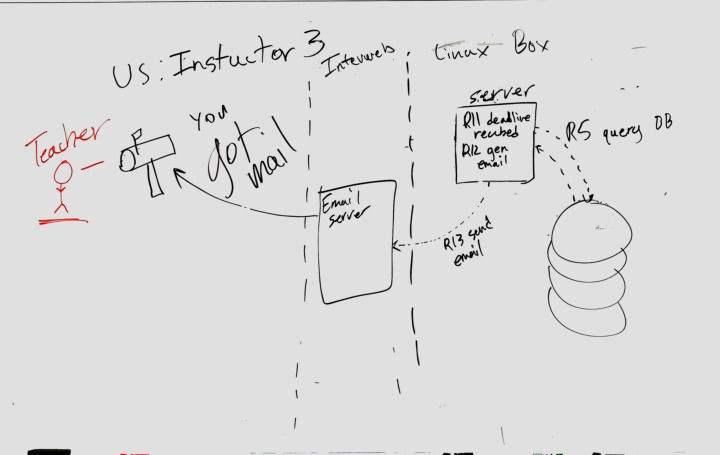 US: Instuctor 3
Interweb
Linux Box
Teacher
you
got
mail
Email
server
server
R11 deadline
reached
R12 gen
email
R5 query DB
R13 send
email